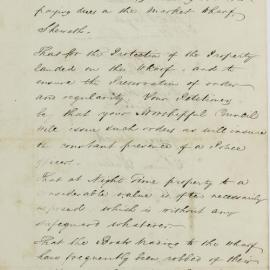 paying dues on the Market Wharf
Sheweth.
That for the Protection of the Property
landed on this Wharf, and to
ensure the Preservation of order
and regularity Your Petitioners
be that your Worshipful Council
will issue such orders as will insure
the constant presence of a Police
officer.
That at Night Time property to a
considerable value is often necessarily
exposed which is without any
safeguard whatever.
That the Boats trading to the Wharf
have frequently been robbed of their